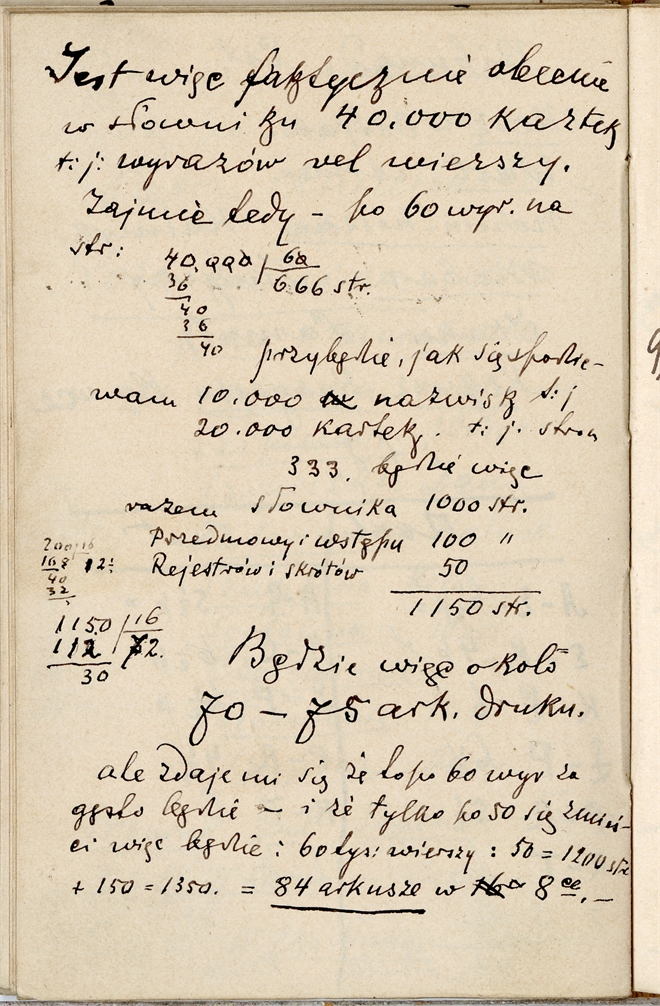 Jest więc faktycznie obecnie
w słowniku 40.000 kartek
t: j: wyrazów vel wierszy.
Zajmie tedy – po 60 wyr. na
str: 40.000 | 60
36 666 str.
40
36
40
przybędzie, jak się spodzie-
wam 10.000 nazwisk t: j
20.000 kartek. t: j. stron
333. będzie więc
razem słownika 1000 str.
Przedmowy i wstępu 100 "
Rejestrów i skrótów 50
1150 str.
200 | 16
168 12
40
32
1150 | 16
112 72.
30
Będzie więc około
70 – 75 ark. druku.
ale zdaje mi się że to po 60 wyr za
gęsto będzie – i że tylko po 50 się zmieś-
ci więc będzie : 60 tys: wierszy : 50 = 1200 str
+ 150 = 1350. = 84 arkusze w 8ce. –